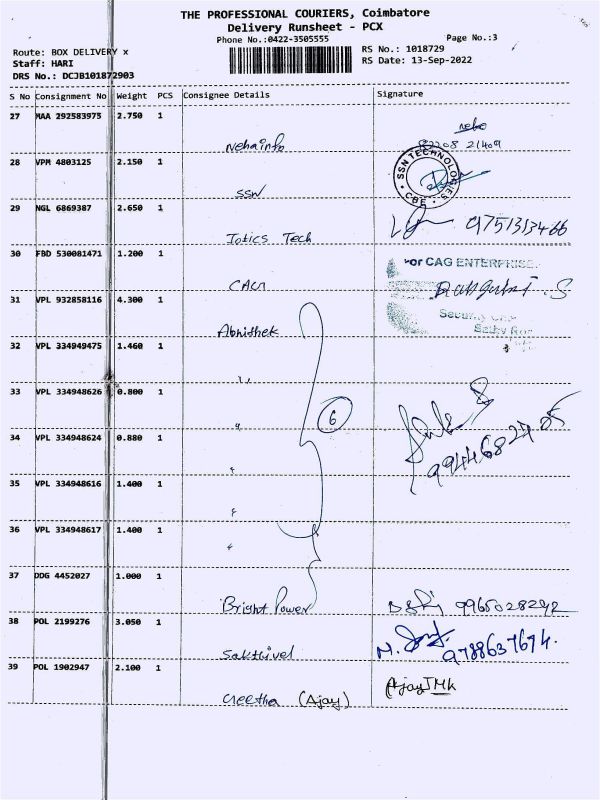 THE PROFESSIONAL COURIERS, Coimbatore
Delivery Runsheet - PCX
Phone No.:0422-3505555
Page No.:3
Route: BOX DELIVERY x
RS No.: 1018729
Staff: HARI
RS Date: 13-Sep-2022
DRS No.: DCJB101872903
S No Consignment No Weight PCS Consignee Details Signature
27 MAA 292583975 2.750 1
Nehainfo
28 VPM 4803125 2.150 1
SSN TECHNOLOGIES CBE
SSN
29 NGL 6869387 2.650 1
9751313466
Jotics Tech
30 FBD 530081471 1.200 1
For CAG ENTERPRISE
CAG
31 VPL 932858116 4.300 1
Security
Abhishek
32 VPL 334949475 1.460 1
"
33 VPL 334948626 0.800 1
6
"
34 VPL 334948624 0.880 1
"
35 VPL 334948616 1.400 1
"
36 VPL 334948617 1.400 1
"
37 DDG 4452027 1.000 1
Bright Power 9965028292
38 POL 2199276 3.050 1
Sakthivel 9788637674.
39 POL 1902947 2.100 1
Geetha (Ajay) Ajay JMK